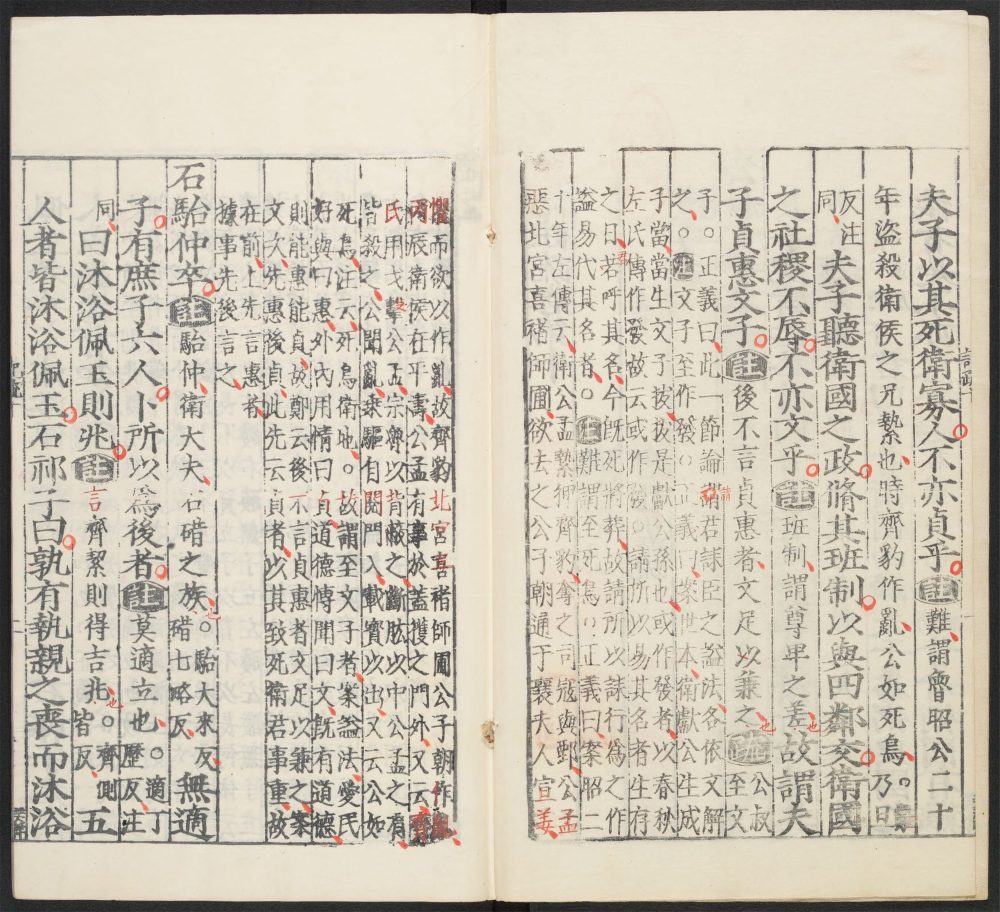 夫子以其死衛寡人不亦貞乎註難謂魯昭公二十
年盜殺衛侯之兄縶也時齊豹作亂公如死鳥。乃旦
反註同夫子聽衛國之政脩其班制以與四鄰交衛國
之社稷不辱不亦文乎註班制謂尊卑之差故謂夫
子貞惠文子註後不言貞惠者文足以兼之疏公叔至文
子。正義曰此一節論謂君誄臣之謚法各依文解
之。註文子至作發。正義曰案世本衛獻公生成
子當當生文子拔拔是獻公孫也或作發者以春秋
左氏傳作發故云或作發。請所以易其名者生存
之日若呼其名今既死將葬故請所以誄行為之作
謚易代其名者。註難謂至死鳥。正義曰案昭二
十年左傳云衛公孟縶狎齊豹奪之司寇與鄄公孟
惡北宮喜褚師圃欲去之公子朝通于襄夫人宣姜
懼而欲以作亂故齊豹北宮喜褚師圃公子朝作亂
丙辰衛侯在平壽公孟有事於蓋獲之門外又云齊
氏用戈擊公孟宗魯以背蔽之斷肱以中公孟之肩
皆殺之公聞亂乘驅自閱門入載寶以出又云公如
死鳥注云死鳥衛地。故謂至文子者案謚法愛民
好與曰惠外內用情曰貞道德博聞曰文既有道德
則能惠能貞故鄭云後不言貞惠者文足以兼之案
文次先惠後貞此先云貞者以其致死衛君事重故
在前上先言惠者
據事先後言之
石駘仲卒註駘仲衛大夫石碏之族。駘大來反碏七略反無適
子有庶子六人卜所以為後者註莫適立也。適丁歷反註
同曰沐浴佩玉則兆註言齊絜則得吉兆。齊側皆反五
人者皆沐浴佩玉石祁子曰孰有執親之喪而沐浴